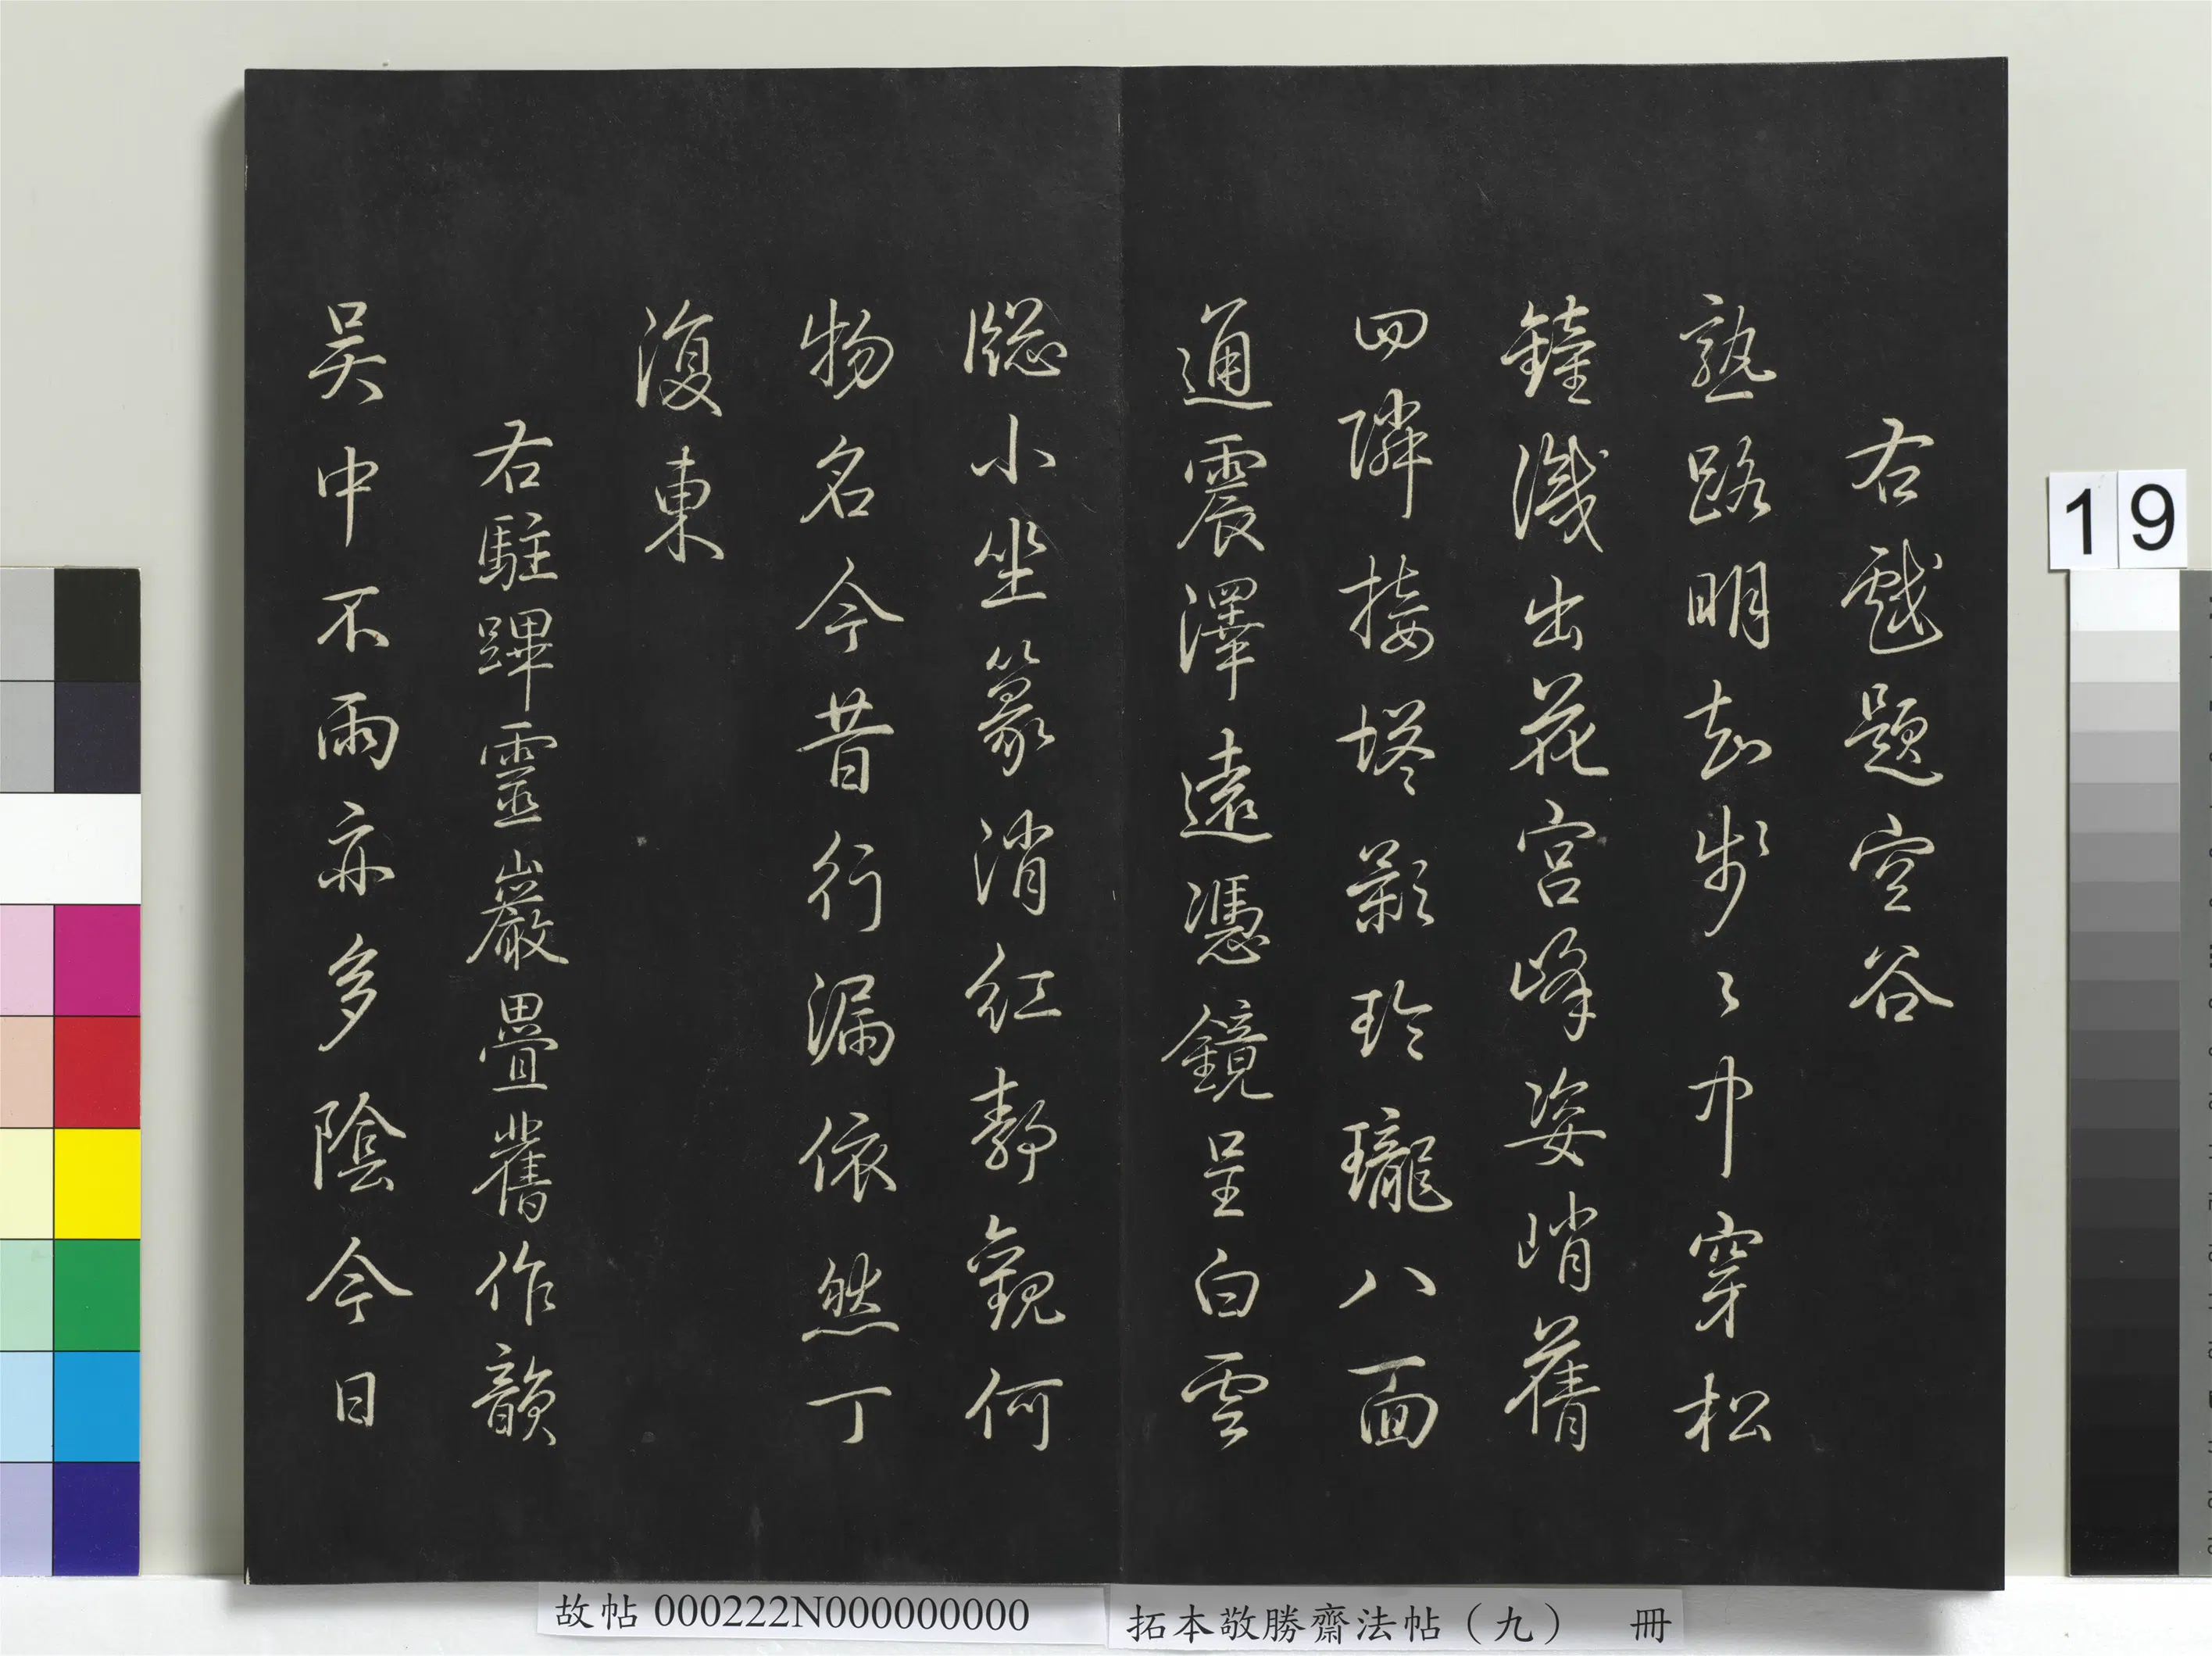 右戲題空谷
熟路明知步〻中穿松
鐘識出花宮峰姿峭蒨
四隣接塔影玲瓏八面
通震澤遠憑鏡呈白雲
牕小坐篆消紅靜觀何
物名今昔行漏依然丁
復東
右駐蹕靈巖疊舊作韻
吳中不雨亦多陰今日
19
故帖 000222N000000000
拓本敬勝齋法帖（九） 冊